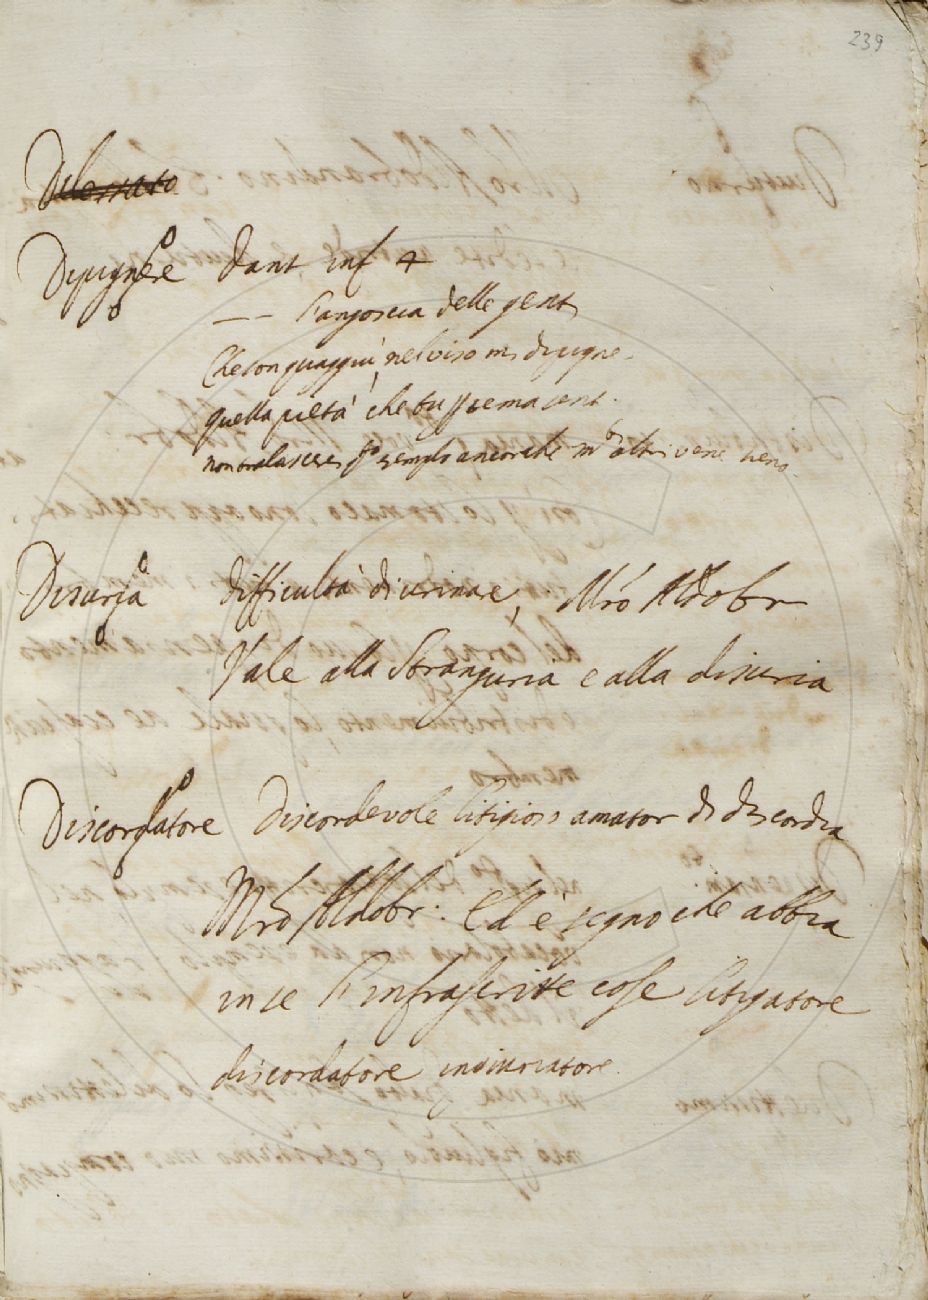 239
Dipignere Dant inf 4
L'angoscia delle genti
Che son quaggiù nel viso mi dipigne
quella pietà che tu per tema senti
non tralascerei essemplo ancorche
Disuria difficultà di urinare, Mrõ Aldobr
Vale alla Stranguria e alla disuria
Discordatore Discordevole litigioso amator di discordia
Mrõ Aldobr: Ed è segno che abbia
in se l'infrascritte cose litigatore
discordatore ingiuriatore.